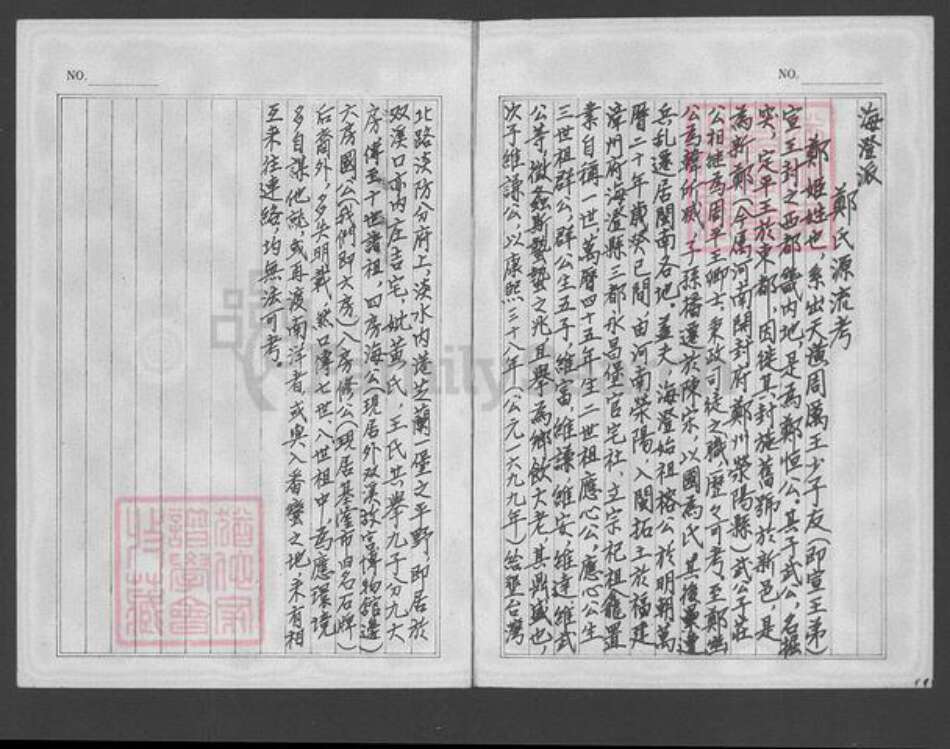 NO.
海澄派
鄭氏源流考
鄭姬姓也,系出天潢周厲王少子友(即宣王弟)
宣王封之西都畿內地是為鄭恒公。其子武公,名掘
突,定平王於東都,因徙其封施舊號於新邑,是
為新鄭(今屬河南開封府鄭州滎陽縣)武公子莊
公相繼為周平王卿士,秉政司徒之職,歷々可考,至鄭幽
公為韓所滅,子孫播遷於陳宋,以國為氏,其後累遭
兵亂還居閩南名地。蓋夫,海澄始祖裕公於明朝萬
曆二十年歲癸巳間,由河南滎陽入閩拓土於福建
漳州府海澄縣三都,永昌堡官宅社、立宗祀祖龕置
業自稱一世,萬曆四十五年生二世祖應心公,應心公生
三世祖群公,群公生五子,維富,維謙,維安,維達維武
公等徵螽斯蟄蟄之兆且舉為鄉飲大老,其鼎盛也,
次子維謙公,以康熙三十八年(公元一六九九年)
NO.
北路淡防分府上,淡水內港芝蘭一堡之平野,即居於
双溪口亦內庄吉宅,妣黃氏,王氏共舉九子分九大
房,傳至十世諸祖,四房海公(現居外双溪故宮博物館邊)
六房國公(我們即六房)八房修公(現居基隆市旧名石牌)
后裔外,多失明載,然口傳七世、八世祖中,為應環境
多自謀他就或再渡南洋者,或與入番蠻之地,未有相
互來往連絡,均無法可考。
FamilySearch